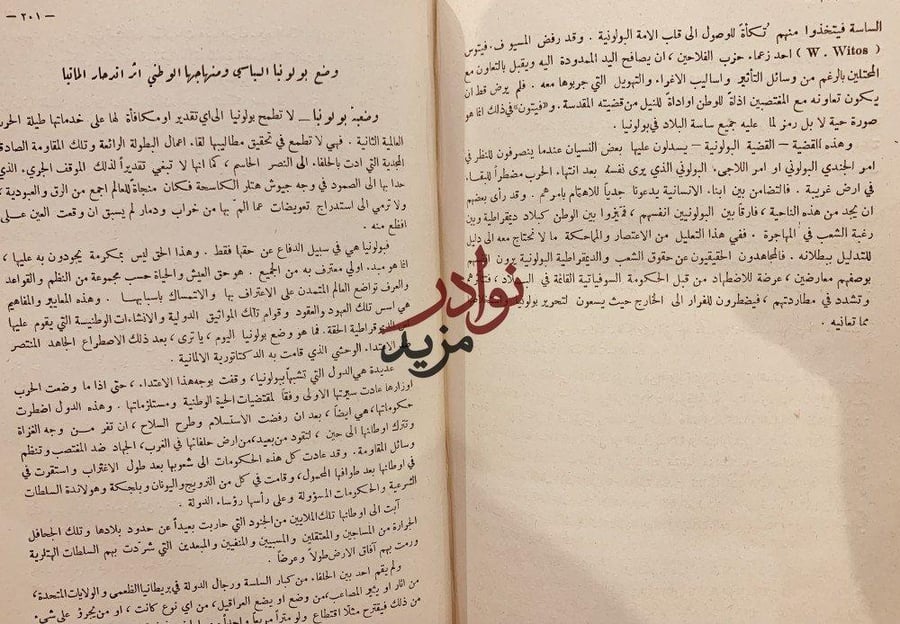 الساسة فيتخذوا منهم تُكأةً للوصول الى قلب الامة البولونية . وقد رفض المسيو ف.فيتوس
( W . Witos ) احد زعماء حزب الفلاحين ، ان يصافح اليد الممدودة اليه ويقبل بالتعاون مع
المحتلين بالرغم من وسائل التأثير واساليب الاغراء والتهويل التي جربوها معه . فلم يرض قط ان
يكون تعاونه مع المغتصبين اذلةً للوطن او اداةً للنيل من قضيته المقدسة . و«فيتون» في ذلك انما هو
صورة حية لا بل رمز لما عليه جميع ساسة البلاد في بولونيا .
وهذه القضية – القضية البولونية – يسدلون عليها بعض النسيان عندما ينصرفون للنظر في
امر الجندي البولوني او امر اللاجىء البولوني الذي يرى نفسه بعد انتهاء الحرب مضطراً للبقاء
في ارض غريبة . فالتضامن بين ابناء الانسانية يدعونا جدياً للاهتمام بامرهم . وقد رأى بعضهم
ان يجد من هذه الناحية ، فارقاً بين البولونيين انفسهم ، فميّزوا بين الوطن كبلاد ديمقراطية وبين
رغبة الشعب في المهاجرة . ففي هذا التعليل من الاعتصار والماحكة ما لا نحتاج معه الى دليل
للتدليل ببطلانه . فالمجاهدون الحقيقيون عن حقوق الشعب والديمقراطية البولونية يرون
بوصفهم معارضين ، عرضة للاضطهاد من قبل الحكومة السوفياتية القائمة في
وتشدد في مطاردتهم ، فيضطرون للفرار الى الخارج حيث يسعون لتحرير
مما تعانيه .
نوادر
مزيد
– ٢٠١ –
وضع بولونيا السياسي ومنهاجها الوطني اثر اندحار المانيا
وضعية بولونيا – لا تطمح بولونيا الى اي تقدير او مكافأة لها على خدماتها طيلة الحرب
العالمية الثانية . فهي لا تطمع في تحقيق مطاليبها لقاء اعمال البطولة الرائعة وتلك المقاومة الصادقة
المجدية التي ادت بالحلفاء الى النصر الحاسم ، كما انها لا تبغي تقديراً لذلك الموقف الجريء الذي
حدا بها الى الصمود في وجه جيوش هتلر الكاسحة فكان منجاة للعالم اجمع من الرق والعبودية ،
ولا ترمي الى استدراج تعويضات عما المّ بها من خراب ودمار لم يسبق ان وقعت العين على
افظع منه .
فبولونيا هي في سبيل الدفاع عن حقها فقط . وهذا الحق ليس بمكرمة يجودون به عليها ،
انما هو مبدء اولي معترف به من الجميع . هو حق العيش والحياة حسب مجموعة من النظم والقواعد
والعرف تواضع العالم المتمدن على الاعتراف بها والاتمساك باسبابها . وهذه المعايير والمفاهيم
هي اسس تلك العهود والعقود وقوام تلك المواثيق الدولية والانشاءات الوطنية التي يقوم عليها
الديمقراطية الحقة . فما هو وضع بولونيا اليوم ، يا ترى ، بعد ذلك الاصطراع الجاهد المنتصر
الاعتداء الوحشي الذي قامت به الدكتاتورية الالمانية .
عديدة هي الدول التي تشبها بولونيا ، وقفت بوجه هذا الاعتداء ، حتى اذا ما وضعت الحرب
اوزارها عادت سيرتها الاولى وفقاً لمقتضيات الحية الوطنية ومستلزماتها . وهذه الدول اضطرت
حكوماتها ، هي ايضاً ، بعد ان رفضت الاستسلام وطرح السلاح ، ان تفر من وجه الغزاة
وتترك اوطانها الى حين ، لتقود من بعيد ، من ارض حلفائها في الغرب ، الجهاد ضد المغتصب وتنظم
وسائل المقاومة . وقد عادت كل هذه الحكومات الى شعوبها بعد طول الاغتراب واستقرت في
في اوطانها بعد طوافها المحمول ، وقامت في كل من النرويج واليونان وبلجيكة وهولاندة السلطات
الشرعية والحكومات المسؤولة وعلى رأسها رؤساء الدولة .
آبت الى اوطانها تلك الملايين من الجنود التي حاربت بعيداً عن حدود بلادها وتلك الجحافل
الجرارة من المساجين والمعتقلين والمسبيين والمنفيين والمبعدين التي شرّدت بهم السلطات الهتلرية
ورمت بهم آفاق الارض طولاً وعرضاً .
ولم يقم احد بين الحلفاء من كبار الساسة ورجال الدولة في بريطانيا العظمى والولايات المتحدة ،
من اثار او يثير المصاعب ، من وضع او يضع العراقيل ، من اي نوع كانت ، او من يجرؤ على شيء
من ذلك فيقترح مثلاً اقتطاع ولو متراً مربعاً واحداً